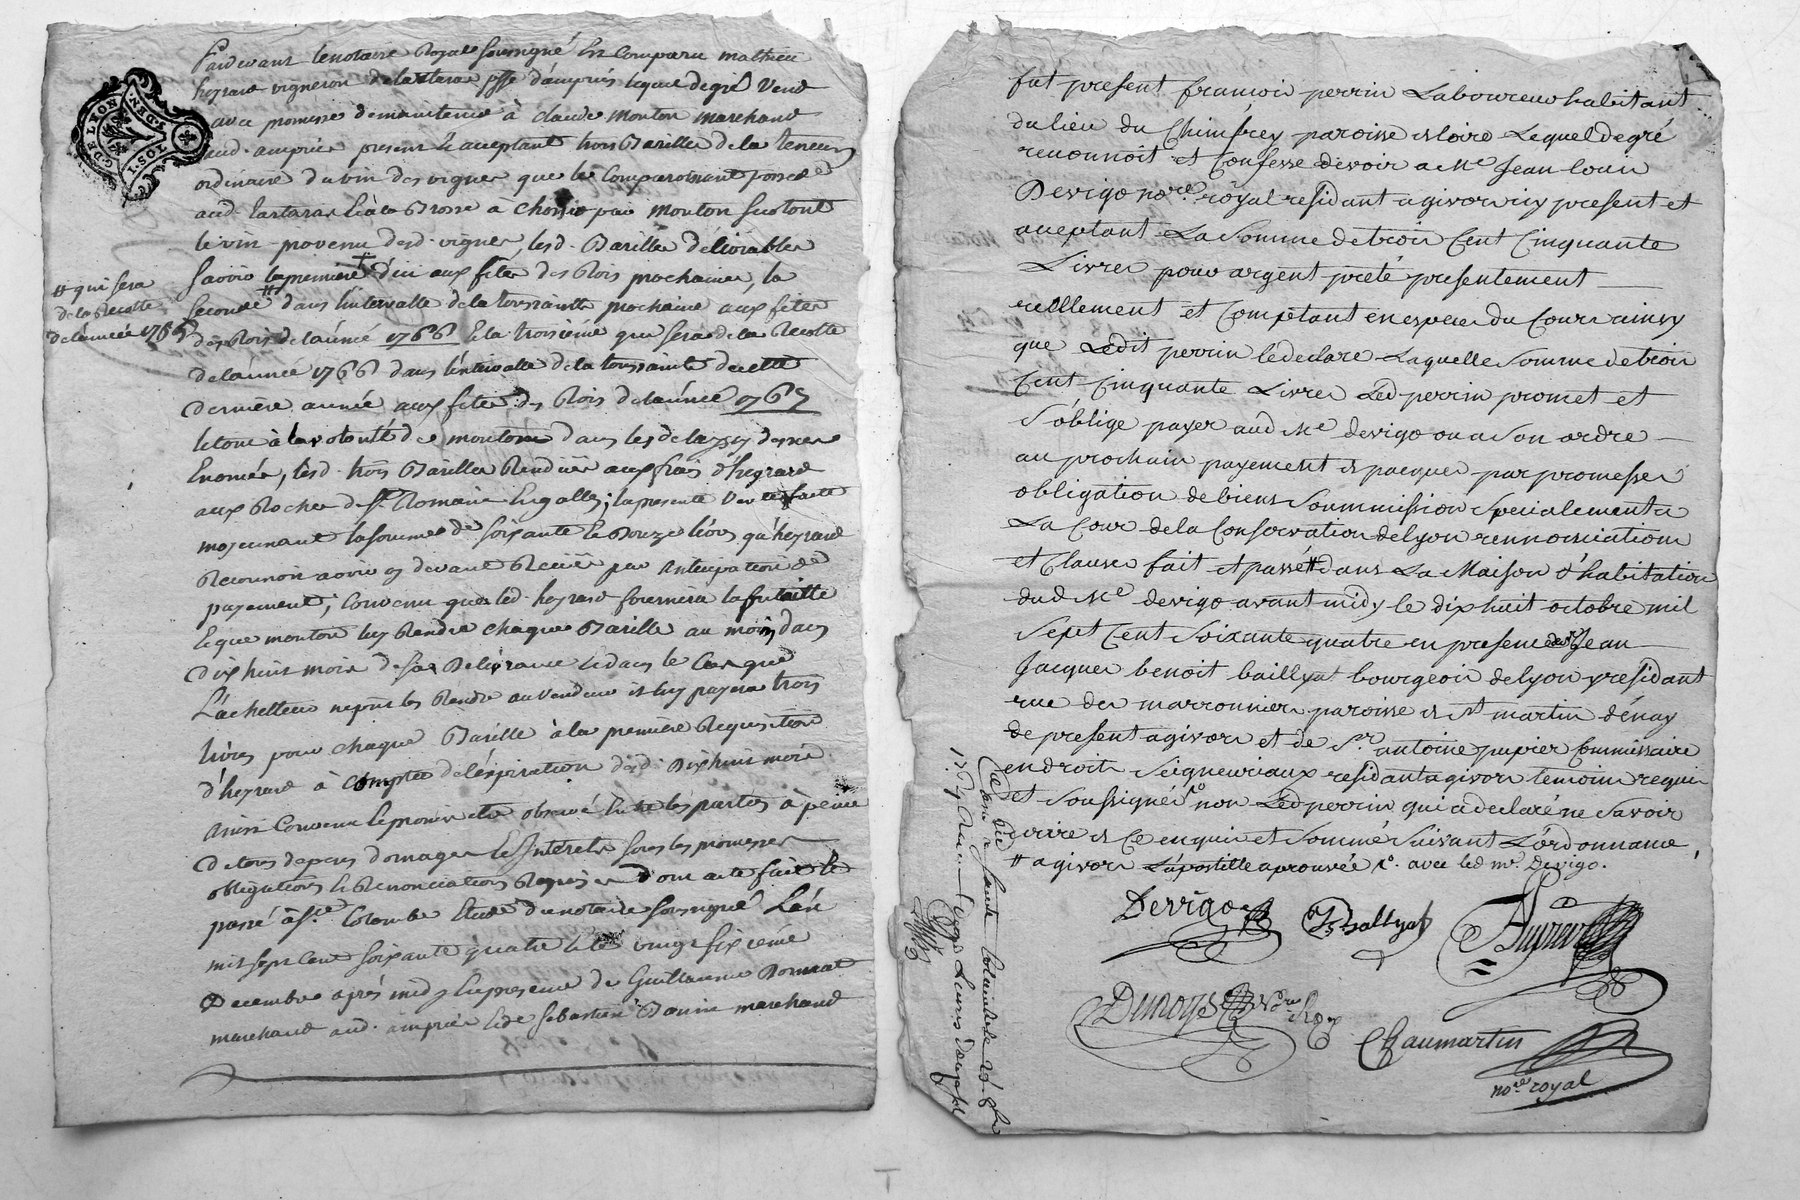 G. DE LYON
Pardevant le notaire Royal soussigné est comparu mathieu
heyraud vigneron
avec promesse de maintenue à claude Monton marchand
aud. ampuis present & acceptant trois Barilles de la teneur
ordinaire du vin des vignes que le Comparoissant possede
à choisir par Monton sur tout
le vin provenu desd. vignes, lesd. Barilles délivrables
savoir la premiere d'ici aux fetes des Rois prochaines, la
seconde dans l'intervalle de la toussaints prochaine aux fetes
des Rois de l'année 1766 & la troisieme qui sera de la Recolte
de l'année 1766 dans l'intervalle de la toussaints de cette
derniere année aux fetes des Rois de l'année 1767
# qui sera
de la Recolte
de l'année 1765
le tout à la volonté de monton dans les delays dessus
Enoncés, lesd. trois Barilles Rendües aux frais d'heyraud
aux Roches de St. Romain Engalles; la presente vente faite
moyennant la somme de soixante & Douze livres qu'heyraud
Reconnoit avoir cy devant Receüe par anticipation de
payement; Convenu que led. heyraud fournira la futaille
& que monton luy Rendra chaque Barille au moins dans
Dix huit mois de sa Delivrance & dans le Cas que
L'achetteur ne put les Rendre au vendeur il luy payera trois
livres pour chaque Barille à la premiere Requisition
d'heyraud à compter de l'expiration desd. Dix huit mois
ainsi Convenu & promis etre observé entre les parties à peine
de tous depens domages & Interets sous les promesses
obligations & Renonciations Requises Dont acte fait &
passé à Ste. Colombe Etude du notaire soussigné L'an
mil sept Cent soixante quatre & le vingt sixieme
Decembre après midy En presence de Guillaume Bonnat
marchand aud. ampuis & de Sebastien Bonin marchand
fut present francois perrin Laboureur habitant
du lieu du Chimfrey paroisse de loire Lequel de gré
reconnoit et Confesse devoir a Me Jean louis
Devigo nore. royal residant a givors icy present et
aceptant La Somme de trois Cent Cinquante
Livres pour argent preté presentement
reellement et Comptant en especes du Cours ainsy
que Ledit perrin le declare Laquelle Somme de trois
Cent Cinquante Livres Led perrin promet et
S'oblige payer aud Me devigo ou a Son ordre
au prochain payement de pacques par promesses
obligation de biens Soummission Specialement a
La Cour de la Conservation de lyon rennonciations
et Clauses fait et passé # dans La Maison d'habitation
dud Me devigo avant midy le dix huit octobre mil
Sept Cent Soixante quatre en presence de Sr. Jean
Jacques benoit baillyat bourgeois de lyon y residant
rue des marronniers paroisse de St martin d'énay
de present a givors et de Sr. antoine pupier Commissaire
en droits Seigneuriaux residant a givors temoins requis
et Soussignés non Led perrin qui a declaré ne Savoir
ecrire de Ce enquis et Sommé Suivant L'ordonnance,
# a givors L'apostille aprouvée avec led me. Devigo.
Devigo
Baillyat
Pupier
Chaumartin
nore. royal